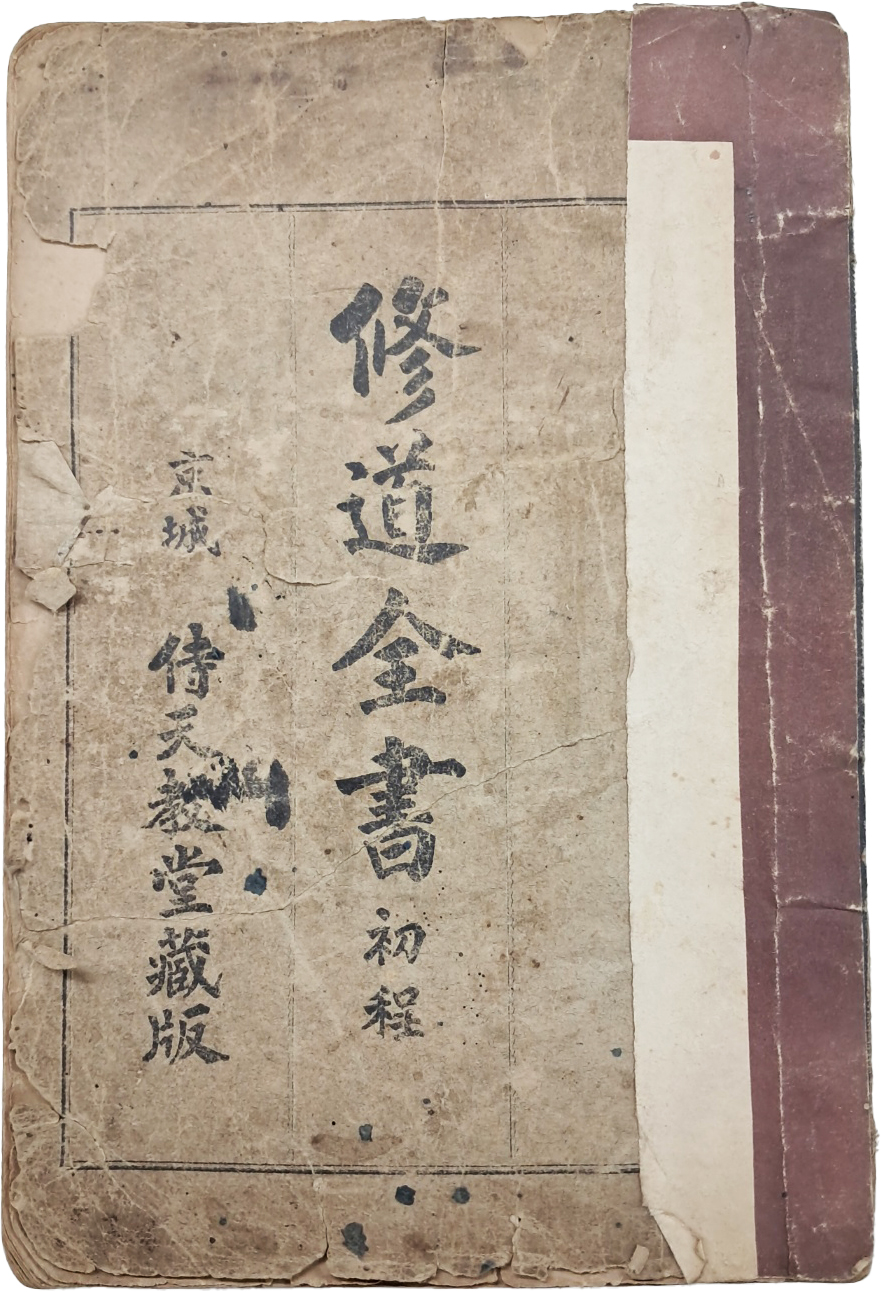 修道全書初程
京城 侍天教堂藏版